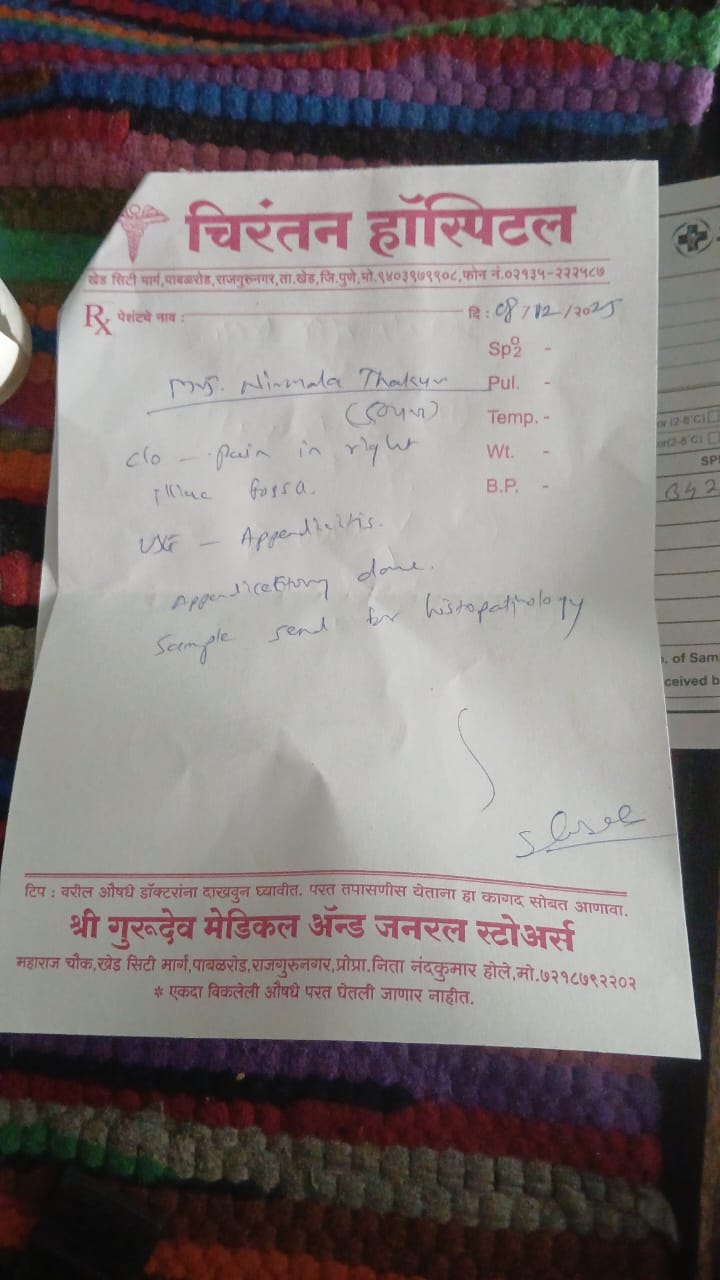 चिरंतन हॉस्पिटल
खेड सिटी मार्ग,पाबळरोड,राजगुरुनगर,ता.खेड,जि.पुणे,मो.९४०३९७९९०८,फोन नं.०२१३५-२२२५८७
Rx पेशंटचे नाव : दि : 08/12/2025
Sp02 -
Mrs. Nirmala Thakur Pul. -
Temp. -
c/o - pain in right Wt. -
Illiac fossa. B.P. -
USG - Appendicitis.
Appendicectomy done.
Sample send for histopathology
टिप : वरील औषधे डॉक्टरांना दाखवुन घ्यावीत. परत तपासणीस येताना हा कागद सोबत आणावा.
श्री गुरूदेव मेडिकल ॲन्ड जनरल स्टोअर्स
महाराज चौक,खेड सिटी मार्ग,पाबळरोड,राजगुरुनगर,प्रोप्रा.निता नंदकुमार होले,मो.७२१८७९२२०२
* एकदा विकलेली औषधे परत घेतली जाणार नाहीत.
or (2-8°C)
or(2-8°C)
SP
B42
. of Sam
ceived b